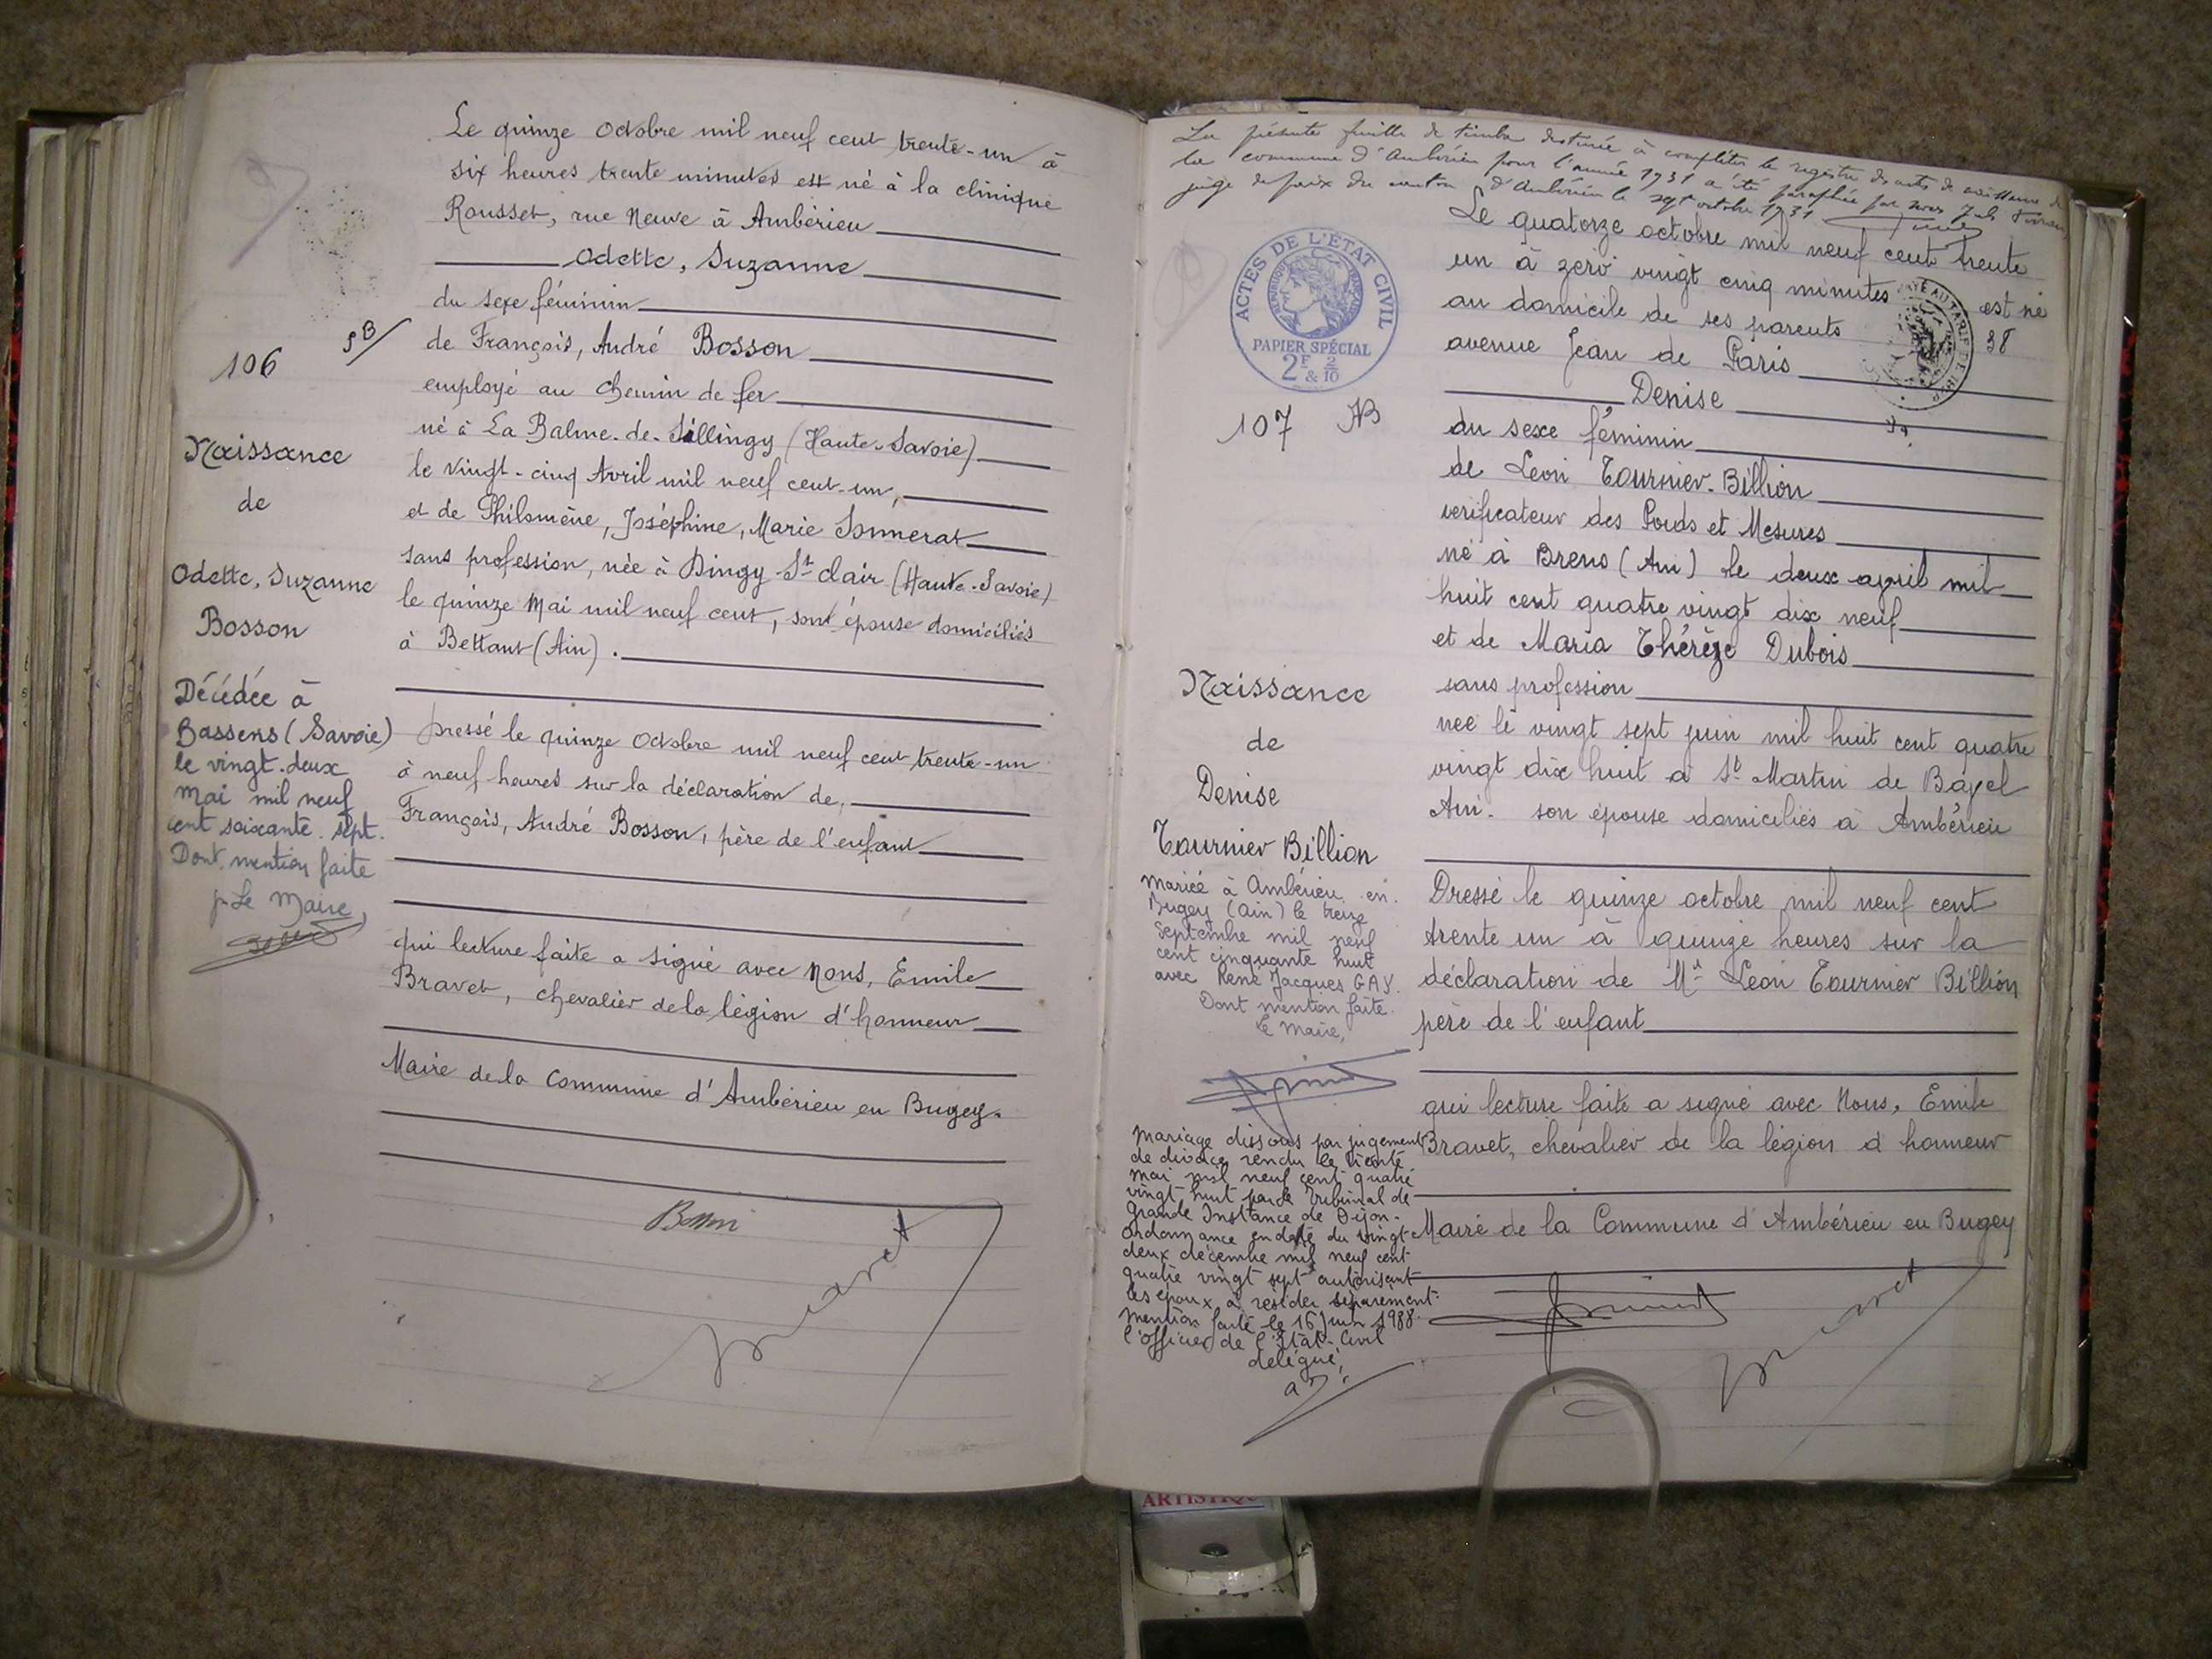 Le quinze octobre mil neuf cent trente-un à
six heures trente minutes est né à la clinique
Rousset, rue Neuve à Ambérieu
Odette, Suzanne
du sexe féminin
de François, André Bosson
employé au chemin de fer
né à La Balme-de-Sillingy (Haute-Savoie)
le vingt-cinq Avril mil neuf cent-un,
et de Philomène, Joséphine, Marie Sonnerat
sans profession, née à Dingy St clair (Haute-Savoie)
le quinze Mai mil neuf cent, son épouse domiciliés
à Bettant (Ain).
Dressé le quinze octobre mil neuf cent trente-un
à neuf heures sur la déclaration de,
François, André Bosson, père de l'enfant
qui lecture faite a signé avec Nous, Emile
Bravet, chevalier de la légion d'honneur
Maire de la Commune d'Ambérieu en Bugey.
Bosson
Bravet
106
Naissance
de
Odette, Suzanne
Bosson
Décédée à
Bassens (Savoie)
le vingt-deux
mai mil neuf
cent soixante-sept.
Dont mention faite
p. Le Maire,
La présente feuille de timbre destinée à compléter le registre des actes de naissance de
la commune d'Ambérieu pour l'année 1931 a été paraphée par nous
juge de paix du canton d'Ambérieu le sept octobre 1931
ACTES DE L'ÉTAT CIVIL
RÉPUBLIQUE FRANÇAISE
PAPIER SPÉCIAL
2F & 2/10
Le quatorze octobre mil neuf cent trente
un à zéro vingt cinq minutes est né
au domicile de ses parents 38
avenue Jean de Paris
Denise
du sexe féminin
de Leon Tournier-Billion
verificateur des Poids et Mesures
né à Brens (Ain) le deux april mil
huit cent quatre vingt dix neuf
et de Maria Thérèze Dubois
sans profession
née le vingt sept juin mil huit cent quatre
vingt dix huit à St Martin de Bayel
Ain. son épouse domiciliés à Ambérieu
Dressé le quinze octobre mil neuf cent
trente un à quinze heures sur la
déclaration de Mr Leon Tournier Billion
père de l'enfant
qui lecture faite a signé avec Nous, Emile
Bravet, chevalier de la légion d honneur
Maire de la Commune d'Ambérieu en Bugey
Bravet
107
Naissance
de
Denise
Tournier Billion
Mariée à Ambérieu en
Bugey (Ain) le treize
septembre mil neuf
cent cinquante huit
avec René Jacques GAY.
Dont mention faite.
Le Maire,
Mariage dissous par jugement
de divorce rendu le trente
mai mil neuf cent quatre
vingt-huit par le Tribunal de
Grande Instance de Dijon.
Ordonnance en date du vingt
deux décembre mil neuf cent
quatre vingt sept autorisant
les époux à résider séparément.
Mention faite le 16 juin 1988.
L'Officier de l'Etat-Civil
délégué,
ARTISTIQUE